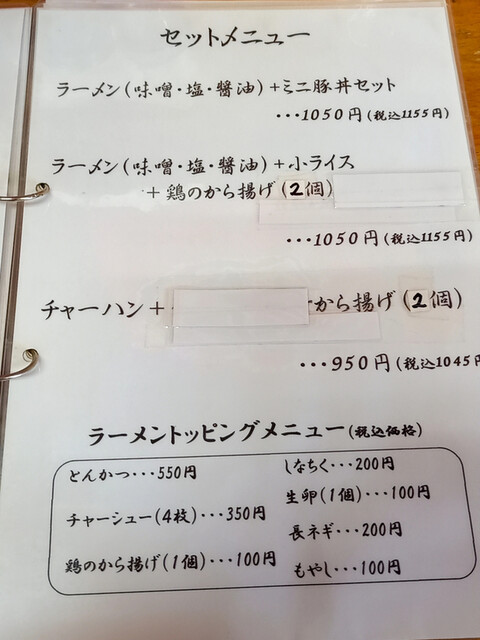 セットメニュー
ラーメン(味噌・塩・醬油)+ミニ豚丼セット
・・・1050円(税込1155円)
ラーメン(味噌・塩・醬油)+小ライス
+鶏のから揚げ(2個)
・・・1050円(税込1155円)
チャーハン+から揚げ(2個)
・・・950円(税込1045円
ラーメントッピングメニュー(税込価格)
とんかつ・・・550円
チャーシュー(4枚)・・・350円
鶏のから揚げ(1個)・・・100円
しなちく・・・200円
生卵(1個)・・・100円
長ネギ・・・200円
もやし・・・100円